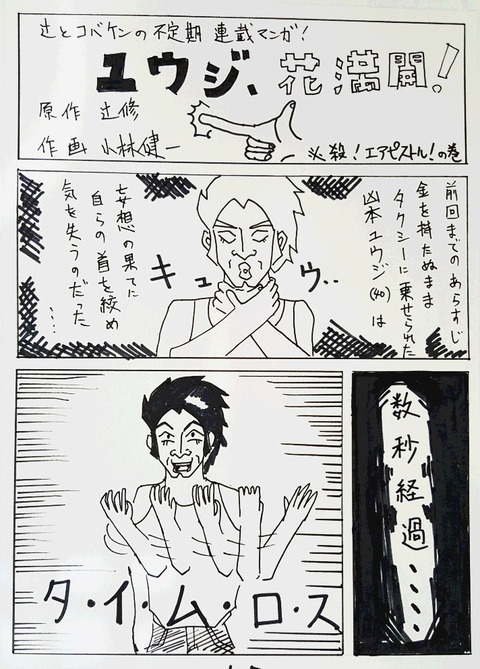 辻とコバケンの不定期連載マンガ!
ユウジ、花満開!
原作 辻修
作画 小林健一
必殺!エアピストル!の巻
前回までのあらすじ
金を持たぬまま
タクシーに乗せられた
凶本ユウジ(40)は
キュウ‥
妄想の果てに
自らの首を絞め
気を失うのだった
‥‥
数秒経過‥‥‥
タ・イ・ム・ロ・ス